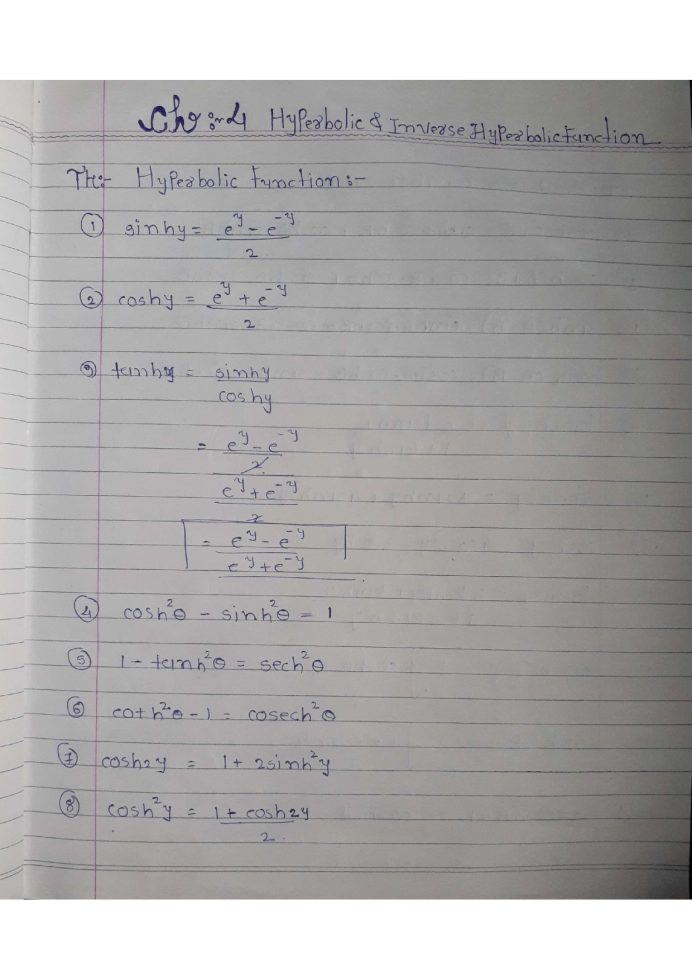 Ch :- 4 Hyperbolic & Inverse Hyperbolic Function
TH:- Hyperbolic Function :-
① sinhy = (e^y - e^-y)/2
② coshy = (e^y + e^-y)/2
③ tanhy = sinhy/coshy
= ((e^y - e^-y)/2)/((e^y + e^-y)/2)
= (e^y - e^-y)/(e^y + e^-y)
④ cosh²θ - sinh²θ = 1
⑤ 1 - tanh²θ = sech²θ
⑥ coth²θ - 1 = cosech²θ
⑦ cosh2y = 1 + 2sinh²y
⑧ cosh²y = (1 + cosh2y)/2